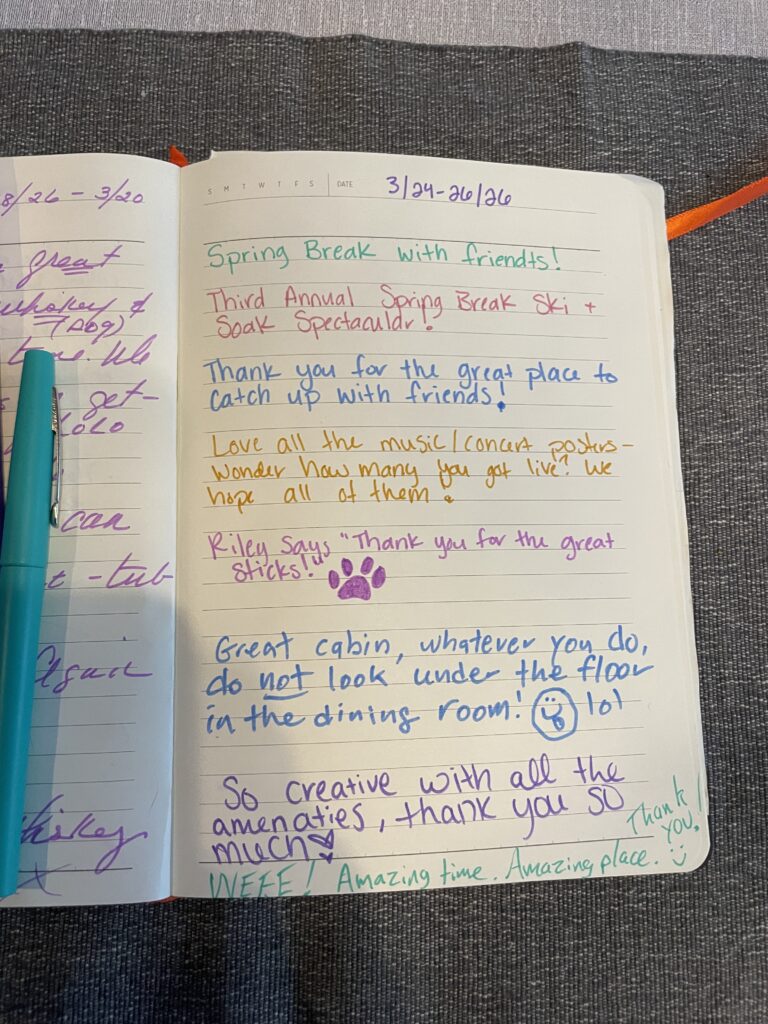 8/26 - 3/20
great
whiskey &
(Dog)
get-
LoLo
can
-tub
Again
S M T W T F S DATE 3/24-26/26
Spring Break with friendts!
Third Annual Spring Break Ski +
Soak Spectacular!
Thank you for the great place to
catch up with friends!
Love all the music/concert posters-
wonder how many you got live? We
hope all of them.
Riley says "Thank you for the great
sticks!"
Great cabin, whatever you do,
do not look under the floor
in the dining room! lol
So creative with all the
amenaties, thank you so
much
WEEE! Amazing time. Amazing place.
Thank
you!